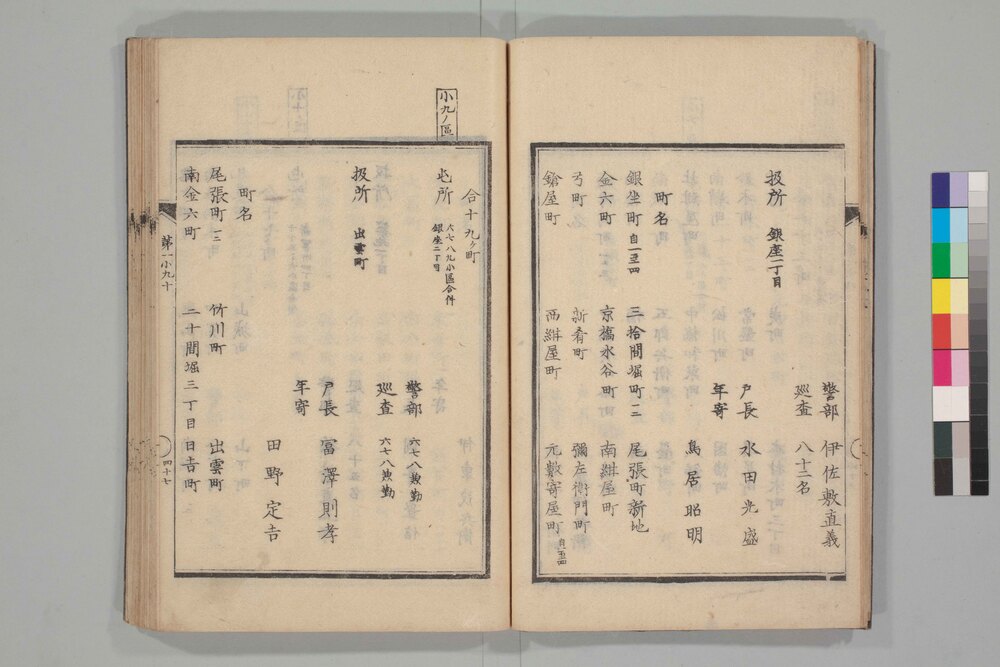 警部 伊佐敷直義
廵査 八十三名
扱所 銀座二丁目
戸長 水田光盛
年寄 鳥居昭明
町名
銀坐町自一至四 三拾間堀町一二 尾張町新地
金六町 京橋水谷町 南紺屋町
弓町 新肴町 彌左衛門町
鎗屋町 西紺屋町 元数寄屋町自一至四
小九ノ區
合十九ケ町
屯所 六七八九小區合併
銀座二丁目
警部 六七八兼勤
廵査 六七八兼勤
扱所 出雲町
戸長 冨澤則孝
年寄
田野定吉
町名
尾張町一二 竹川町 出雲町
南金六町 二十間堀三丁目 日吉町
第一小九十
四十七